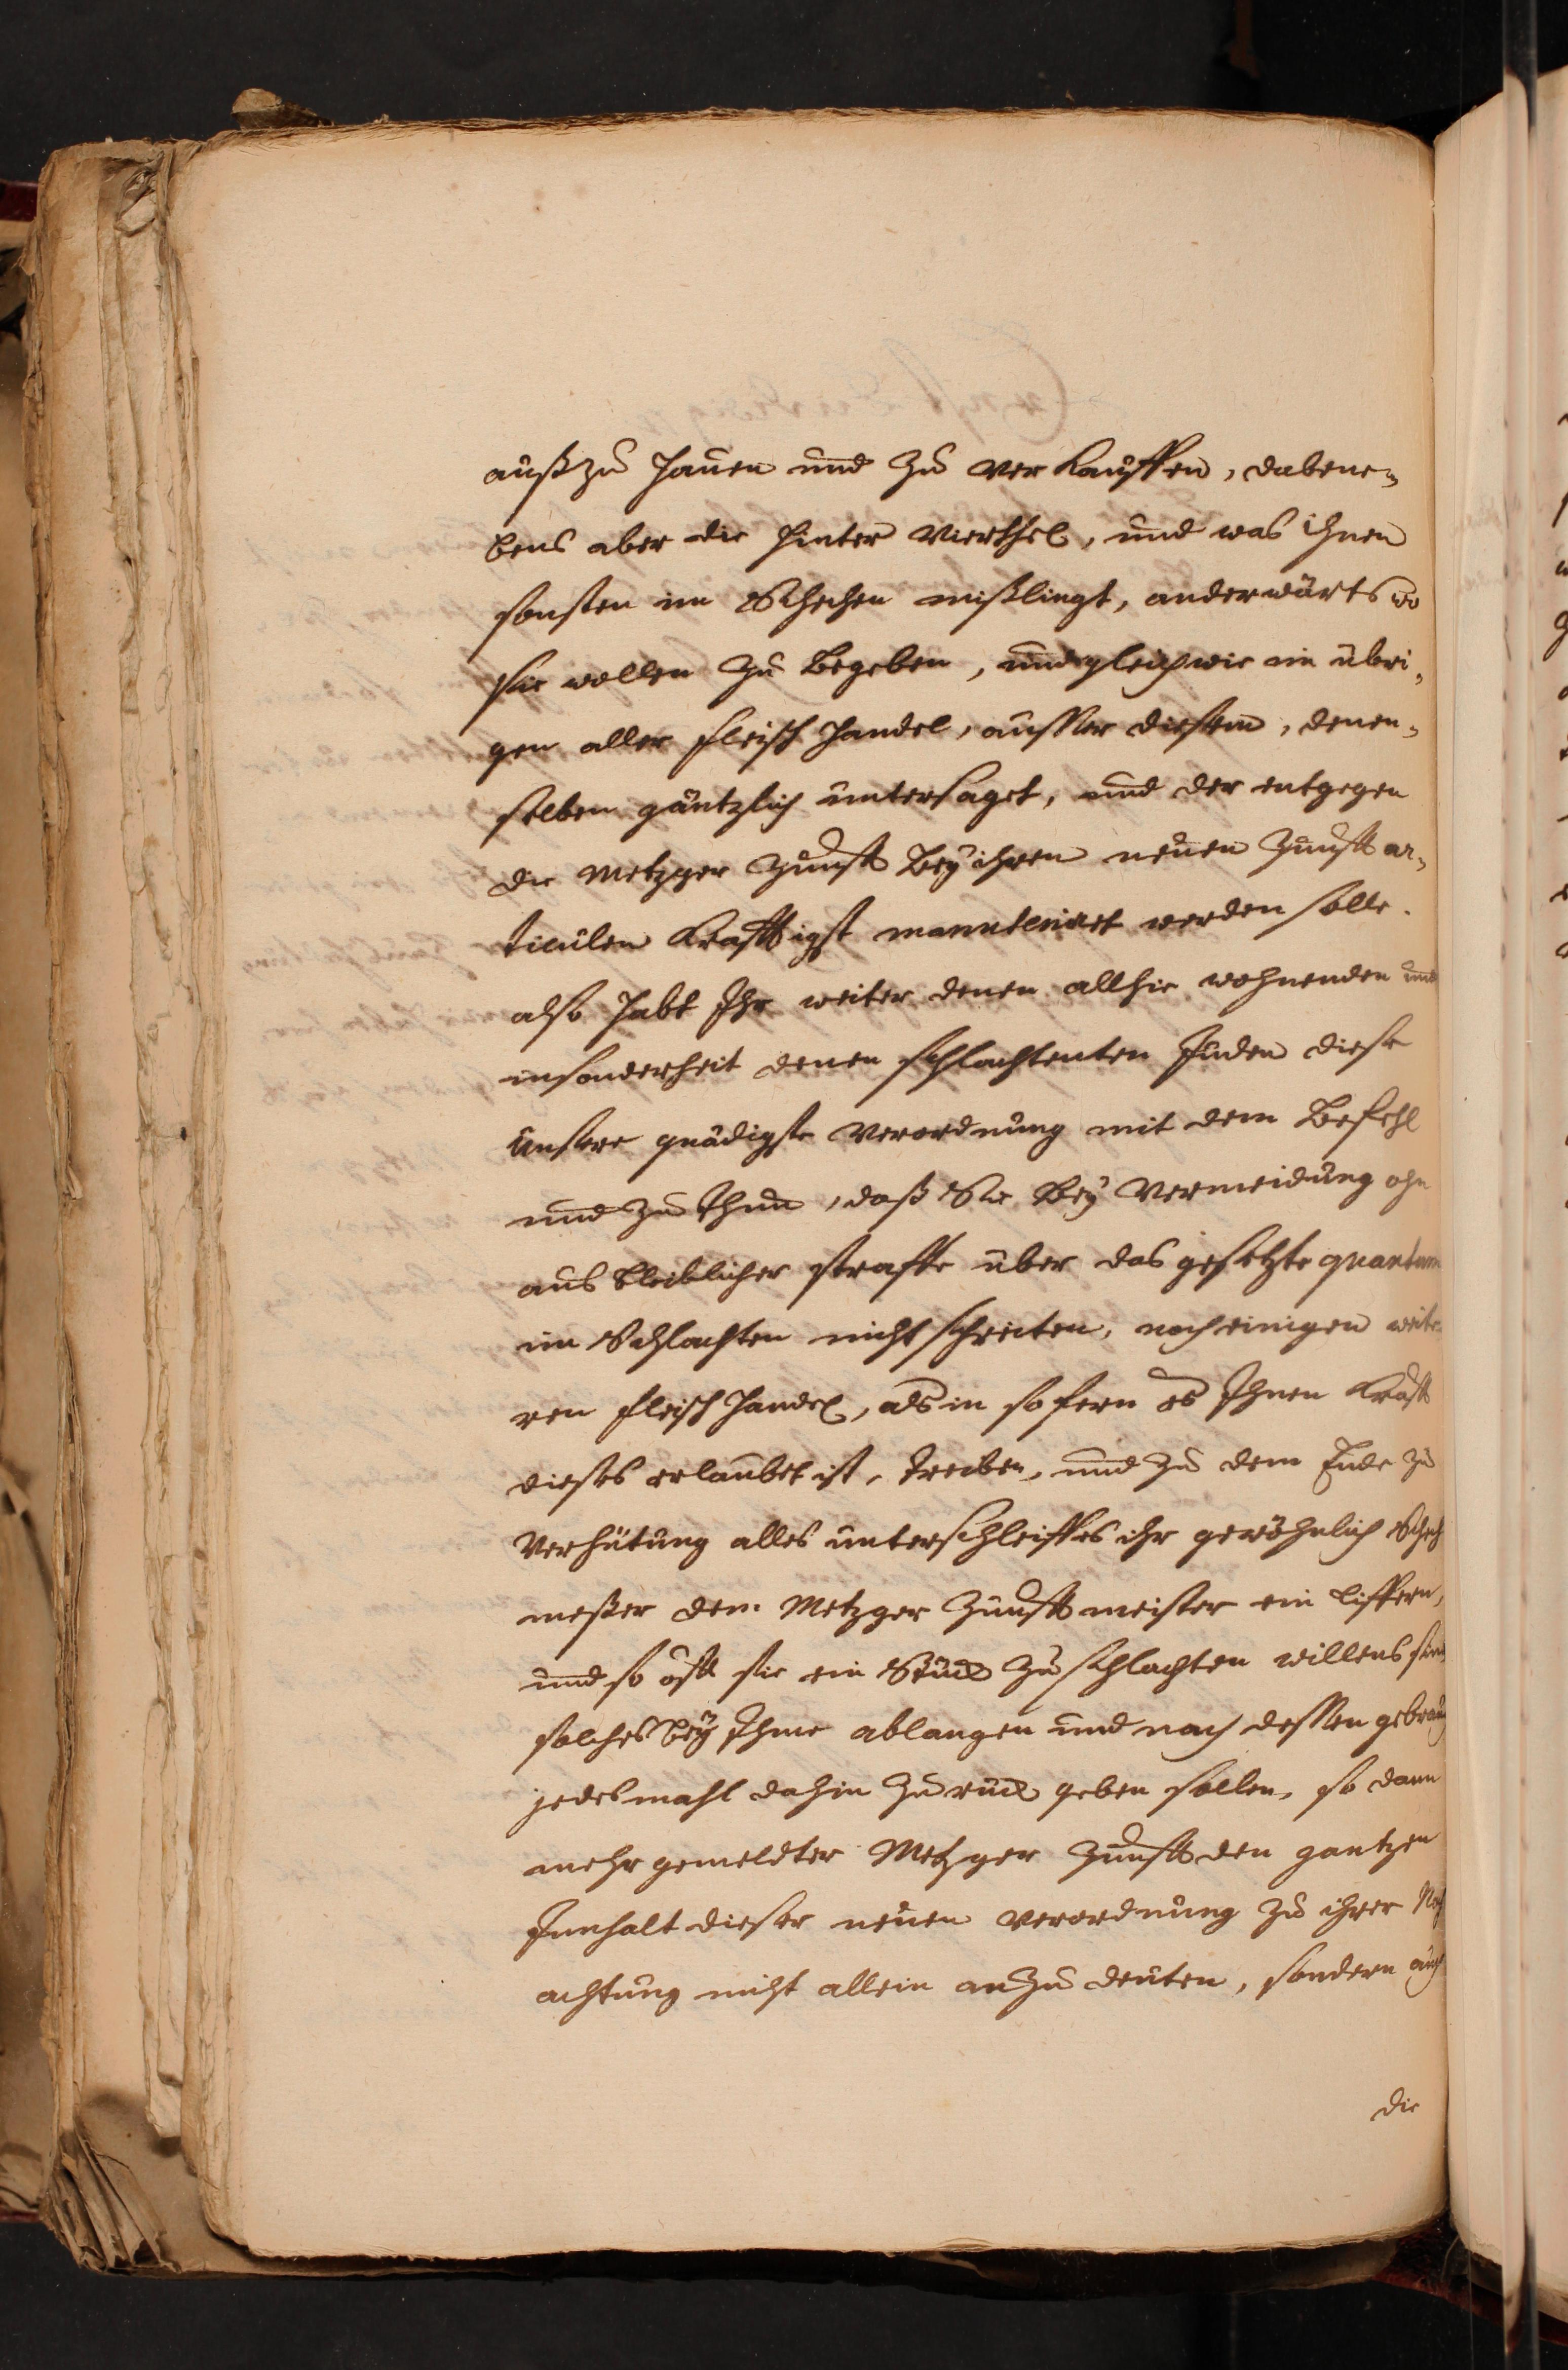 außzu hauen und zu verkauffen, dabene-
bens aber die hinter Vierthel, und was ihnen
sonsten im Schechen mißlingt, anderwärts wo
sie wollen zu begeben, und gleichwie im übri-
gen aller fleisch handel, ausser diesem, denen-
selben gäntzlich untersaget, und der entgegen
die Metzger Zunfft bey ihren neuen Zunfft ar-
ticulen kräfftigst manuteniret werden solle.
also habt Ihr weiter denen allhie wohnenden und
insonderheit denen schlachtenten Juden diese
unsere gnädigste Verordnung mit dem Befehl
und zu thun, daß Sie bey Vermeidung ohn
ausbleiblicher straffe über das gesetzte quantum
im Schlachten nicht schreiten, noch einigen weite
ren fleisch handel, als in so fern es Ihnen krafft
dieses erlaubet ist, treiben, und zu dem Ende zu
Verhütung alles unterschleiffes ihr gewöhnlich Schech
meßer dem Metzger Zunfft meister ein liffern,
und so offt sie ein Stück zu schlachten willens sind
solches bey Ihme ablangen und nach dessen gebrauch
jedesmahl dahin zu rück geben sollen, so dann
mehr gemeldter Metzger Zunfft den gantzen
Innhalt dieser neuen Verordnung zu ihrer Nach
achtung nicht allein anzu deuten, sondern auch
die